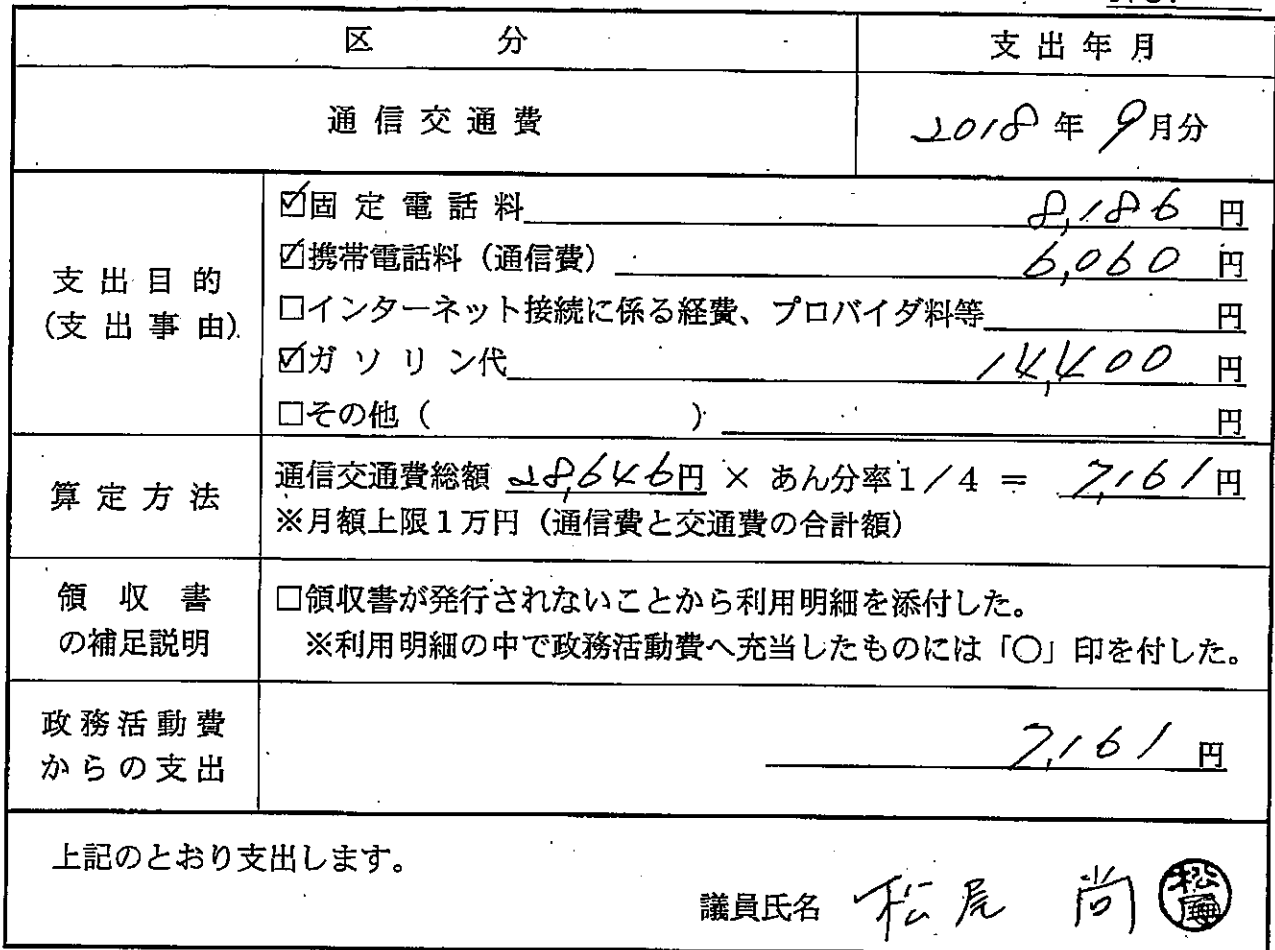 区分 支出年月
通信交通費 2018年9月分
支出目的
(支出事由)
☑固定電話料 8,186円
☑携帯電話料（通信費） 6,060円
□インターネット接続に係る経費、プロバイダ料等 円
☑ガソリン代 14,400円
□その他（ ） 円
算定方法
通信交通費総額 28,646円 × あん分率1／4 ＝ 7,161円
※月額上限1万円（通信費と交通費の合計額）
領収書
の補足説明
□領収書が発行されないことから利用明細を添付した。
※利用明細の中で政務活動費へ充当したものには「○」印を付した。
政務活動費
からの支出
7,161円
上記のとおり支出します。
議員氏名 松尾 尚 松尾